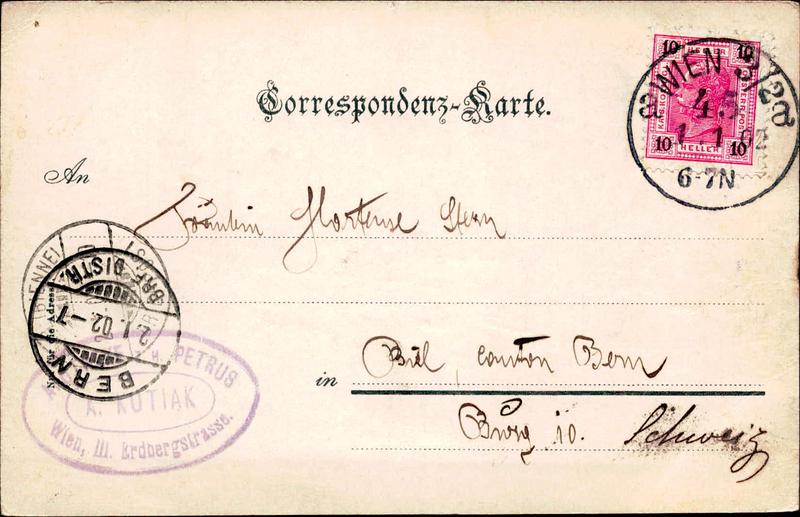 Correspondenz-Karte.
10 10
HELLER
WIEN 3/2
4.5
1 1 02
6-7N
10 HELLER 10
An
Fräulein Hortense Stern
BRF. DISTR.
2. I. 02 - 7
BERN
PETRUS
A. KUTIAK
Wien, III. Erdbergstrasse.
in Biel, canton Bern
Burg 10. Schweiz